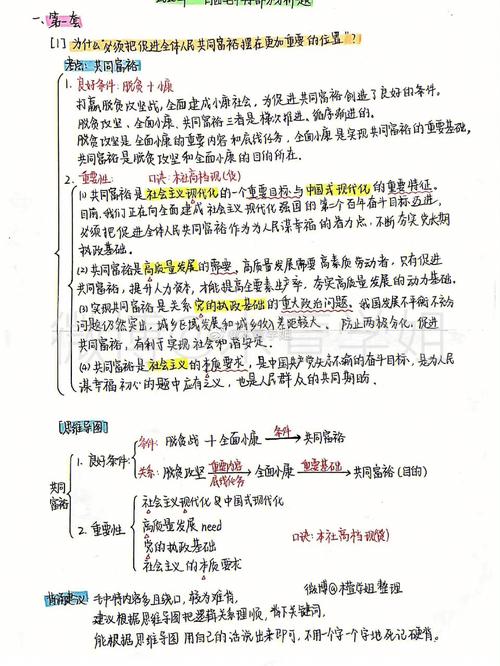 一、第一套
[1] 为什么"必须把促进全体人民共同富裕摆在更加重要的位置"?
考点:共同富裕
1. 良好条件:脱贫+小康
打赢脱贫攻坚战,全面建成小康社会,为促进共同富裕创造了良好的条件。
脱贫攻坚、全面小康、共同富裕三者是梯次推进、循序渐进的。
脱贫攻坚是全面小康的重要内容和底线任务,全面小康是实现共同富裕的重要基础,
共同富裕是脱贫攻坚和全面小康的目的所在。
2. 重要性: 口诀:本社高档现(货)
(1) 共同富裕是社会主义现代化的一个重要目标与中国式现代化的重要特征。
目前,我们正在向全面建成社会主义现代化强国的第二个百年奋斗目标迈进,
必须把促进全体人民共同富裕作为为人民谋幸福的着力点,不断夯实党长期
执政基础。
(2) 共同富裕是高质量发展的需要。高质量发展需要高素质劳动者,只有促进
共同富裕,提升人力资本,才能提高全要素生产率,夯实高质量发展的动力基础。
(3) 实现共同富裕是关系党的执政基础的重大政治问题。我国发展不平衡不充分
问题仍然突出,城乡区域发展和城乡收入差距较大。防止两极分化,促进
共同富裕,有利于实现社会和谐安定。
(4) 共同富裕是社会主义的本质要求,是中国共产党矢志不渝的奋斗目标,是为人民
谋幸福初心的题中应有之义,也是人民群众的共同期盼。
[思维导图]
共同富裕
1. 良好条件:
条件:脱贫战+全面小康 条件 共同富裕
关系:脱贫攻坚 重要内容 底线任务 全面小康 重要基础 共同富裕(目的)
2. 重要性
社会主义现代化&中国式现代化
高质量发展need
党的执政基础
社会主义的本质要求
口诀:本社高档现(货)
背诵建议:毛中特内容多且绕口,较为难背。
微博@橙学姐整理
建议根据思维导图把逻辑关系理顺,背下关键词,
能根据思维导图用自己的话说出来即可,不用一个字一个字地死记硬背。